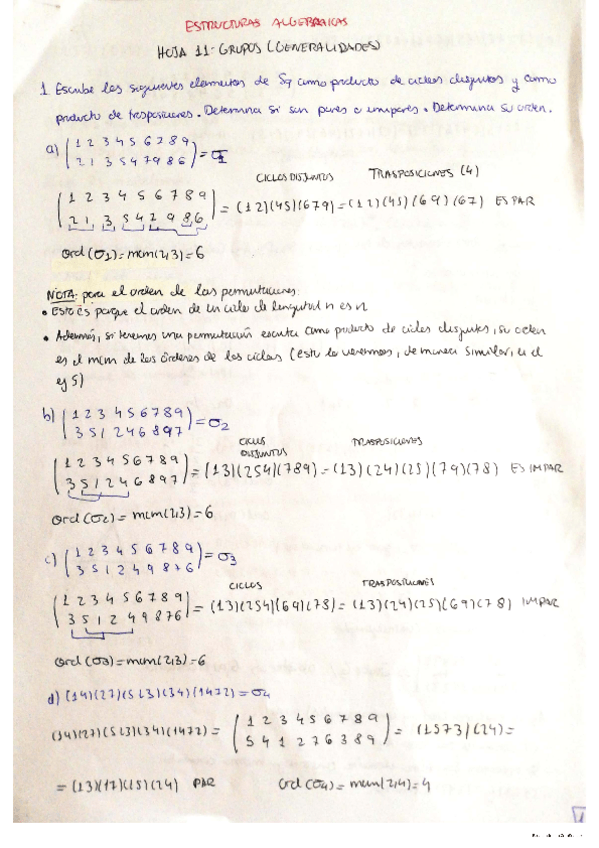 ESTRUCTURAS ALGEBRAICAS
HOJA 11: GRUPOS (GENERALIDADES)
1 Escribe los siguientes elementos de S9 como producto de ciclos disjuntos y como
producto de trasposiciones. Determina si son pares o impares. Determina su orden.
a) (1 2 3 4 5 6 7 8 9
2 1 3 5 4 7 9 8 6) = σ1
CICLOS DISJUNTOS TRASPOSICIONES (4)
(1 2 3 4 5 6 7 8 9
2 1 3 5 4 7 9 8 6) = (12)(45)(679) = (12)(45)(69)(67) ES PAR
ord(σ1) = mcm(2,3) = 6
NOTA: para el orden de las permutaciones:
• Esto es porque el orden de un ciclo de longitud n es n
• Además, si tenemos una permutación escrita como producto de ciclos disjuntos, su orden
es el mcm de los órdenes de los ciclos (esto lo veremos, de manera similar, en el
ej 5)
b) (1 2 3 4 5 6 7 8 9
3 5 1 2 4 6 8 9 7) = σ2
CICLOS
DISJUNTOS TRASPOSICIONES
(1 2 3 4 5 6 7 8 9
3 5 1 2 4 6 8 9 7) = (13)(254)(789) = (13)(24)(25)(79)(78) ES IMPAR
ord(σ2) = mcm(2,3) = 6
c) (1 2 3 4 5 6 7 8 9
3 5 1 2 4 9 8 7 6) = σ3
CICLOS TRASPOSICIONES
(1 2 3 4 5 6 7 8 9
3 5 1 2 4 9 8 7 6) = (13)(254)(69)(78) = (13)(24)(25)(69)(78) IMPAR
ord(σ3) = mcm(2,3) = 6
d) (14)(27)(523)(34)(1472) = σ4
(14)(27)(523)(34)(1472) = (1 2 3 4 5 6 7 8 9
5 4 1 2 7 6 3 8 9) = (1573)(24) =
= (13)(17)(15)(24) PAR ord(σ4) = mcm(2,4) = 4
1